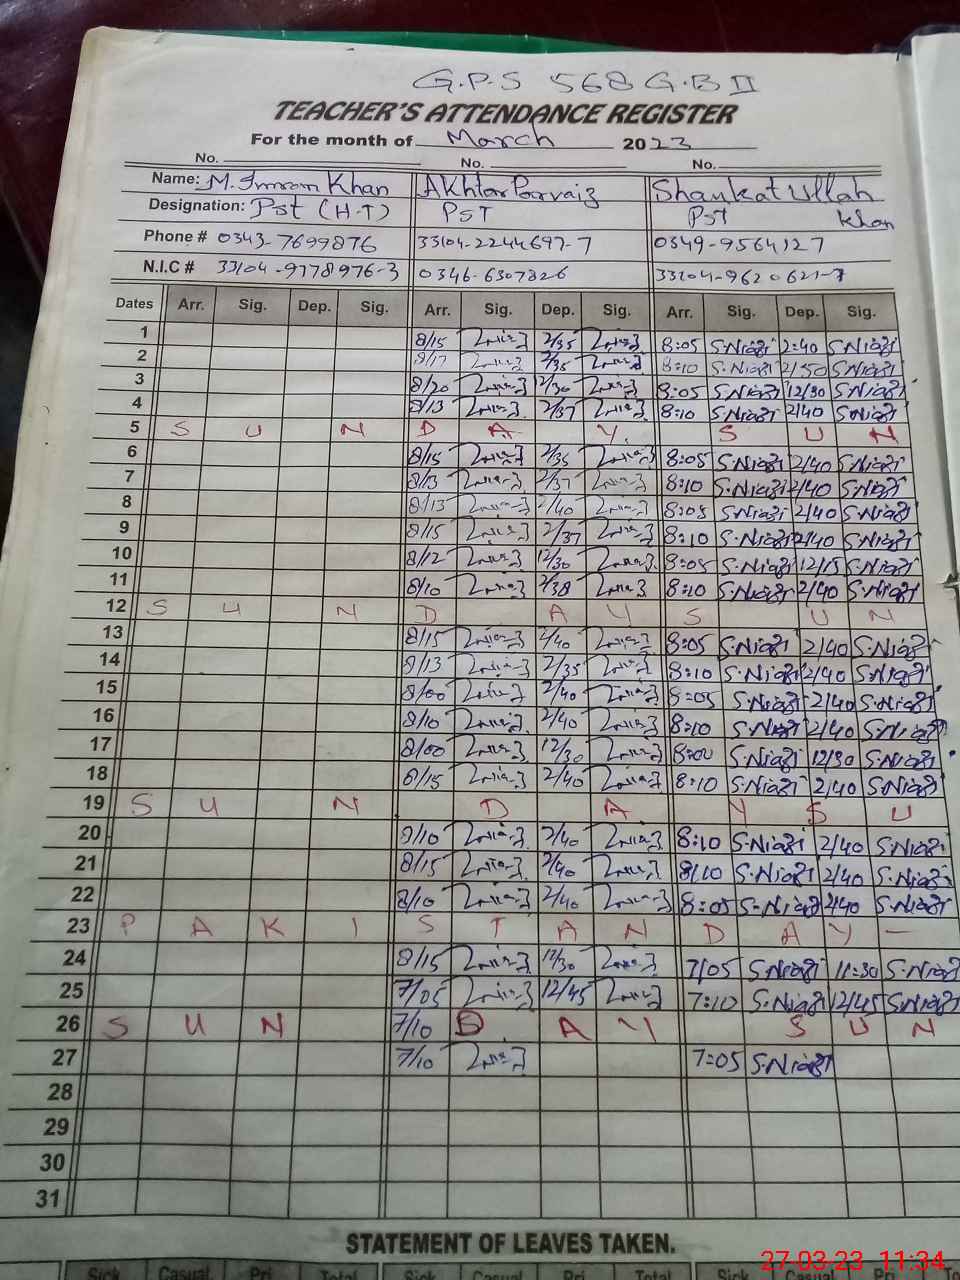 G.P.S 568 G.B II
TEACHER'S ATTENDANCE REGISTER
For the month of March 2023
No. No. No.
Name: M. Imran Khan Akhtar Parvaiz Shaukat Ullah Khan
Designation: Pst (H.T) PST Pst
Phone # 0343-7699876 33104-2244697-7 0349-9564127
N.I.C # 33104-9778976-3 0346-6307826 33104-9620621-7
Dates Arr. Sig. Dep. Sig. Arr. Sig. Dep. Sig. Arr. Sig. Dep. Sig.
1 8/15 2/35 8:05 S.Niazi 2:40 S.Niazi
2 8/17 2/35 8:10 S.Niazi 2/50 S.Niazi
3 8/20 12/30 8:05 S.Niazi 12/30 S.Niazi
4 8/13 2/37 8:10 S.Niazi 2/40 S.Niazi
5 S U N D A Y. S U N
6 8/15 2/35 8:05 S.Niazi 2/40 S.Niazi
7 8/13 2/37 8:10 S.Niazi 2/40 S.Niazi
8 8/13 2/40 8:05 S.Niazi 2/40 S.Niazi
9 8/15 2/37 8:10 S.Niazi 2/40 S.Niazi
10 8/12 12/30 8:05 S.Niazi 12/15 S.Niazi
11 8/10 2/38 8:10 S.Niazi 2/40 S.Niazi
12 S U N D A Y S U N
13 8/15 2/40 8:05 S.Niazi 2/40 S.Niazi
14 8/13 2/35 8:10 S.Niazi 2/40 S.Niazi
15 8/00 2/40 8:05 S.Niazi 2/40 S.Niazi
16 8/10 2/40 8:10 S.Niazi 2/40 S.Niazi
17 8/00 12/30 8:00 S.Niazi 12/30 S.Niazi
18 8/15 2/40 8:10 S.Niazi 2/40 S.Niazi
19 S U N D A Y S U
20 8/10 2/40 8:10 S.Niazi 2/40 S.Niazi
21 8/15 2/40 8/10 S.Niazi 2/40 S.Niazi
22 8/10 2/40 8:05 S.Niazi 2/40 S.Niazi
23 P A K I S T A N D A Y -
24 8/15 12/30 7/05 S.Niazi 11:30 S.Niazi
25 7/05 12/45 7:10 S.Niazi 12/45 S.Niazi
26 S U N 7/10 D A Y S U N
27 7/10 7:05 S.Niazi
28
29
30
31
STATEMENT OF LEAVES TAKEN.
Sick Casual Pri. Total Sick Casual Pri. Total Sick Casual Pri. To
27-03-23 11:34